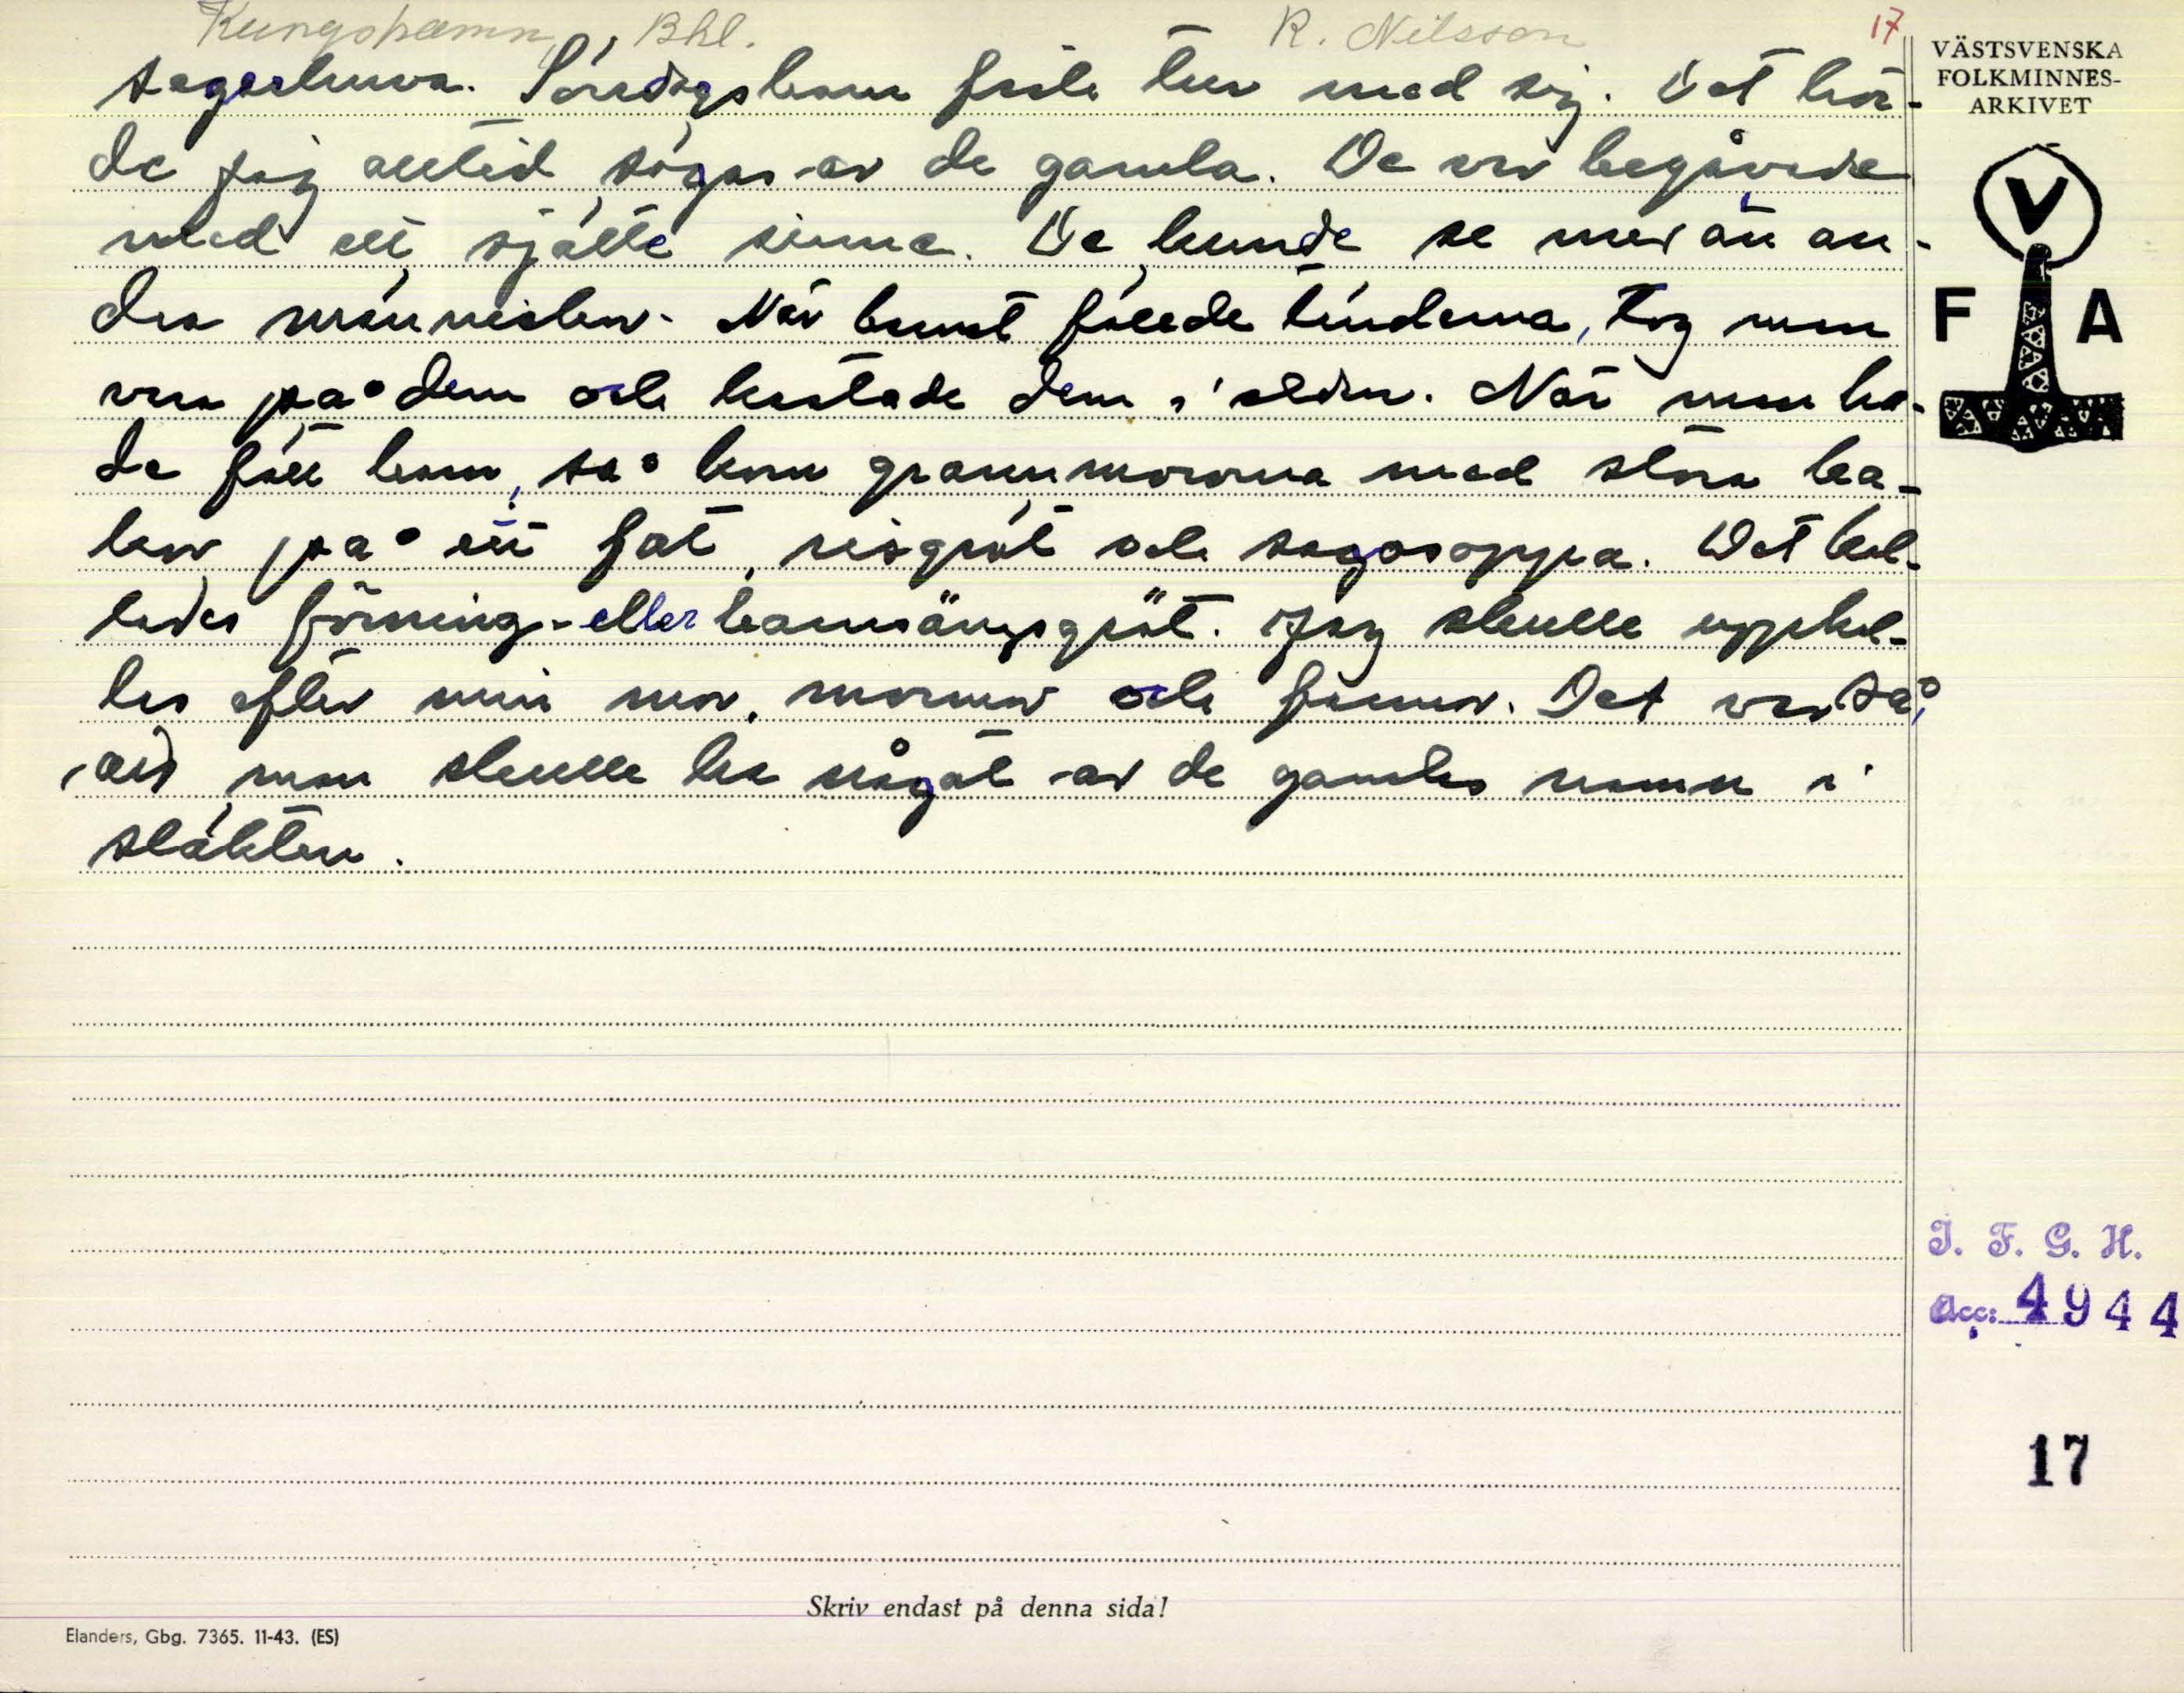 Kungshamn, Bhl. R. Nilsson 17
segerhuva. Söndagsbarn förde tur med sig. Det hör-
de jag alltid sägas av de gamla. De var begåvade
med ett sjätte sinne. De kunde se mer än an-
dra människor. När barnet fällde tänderna, tog man
vara på dem och kastade dem i elden. När man ha-
de fått barn, så kom grannmororna med stora ka-
kor på ett fat, risgröt och sagosoppa. Det kal-
lades förning- eller barnsängsgröt. Jag skulle uppkal-
las efter min mor, mormor och farmor. Det var så,
att man skulle ha något av de gamlas namn i
släkten.
VÄSTSVENSKA
FOLKMINNES-
ARKIVET
V
F A
I. F. G. H.
Acc: 4944
17
Skriv endast på denna sida!
Elanders, Gbg. 7365. 11-43. (ES)